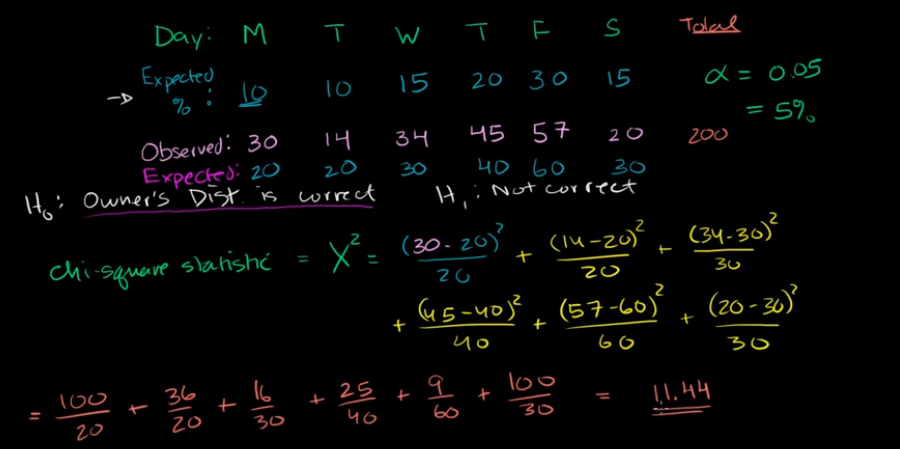 Day: M T W T F S Total
Expected %: 10 10 15 20 30 15 α = 0.05
= 5%
Observed: 30 14 34 45 57 20 200
Expected: 20 20 30 40 60 30
H₀: Owner's Dist. is correct H₁: Not correct
Chi-square statistic = X² = (30-20)²/20 + (14-20)²/20 + (34-30)²/30
+ (45-40)²/40 + (57-60)²/60 + (20-30)²/30
= 100/20 + 36/20 + 16/30 + 25/40 + 9/60 + 100/30 = 11.44